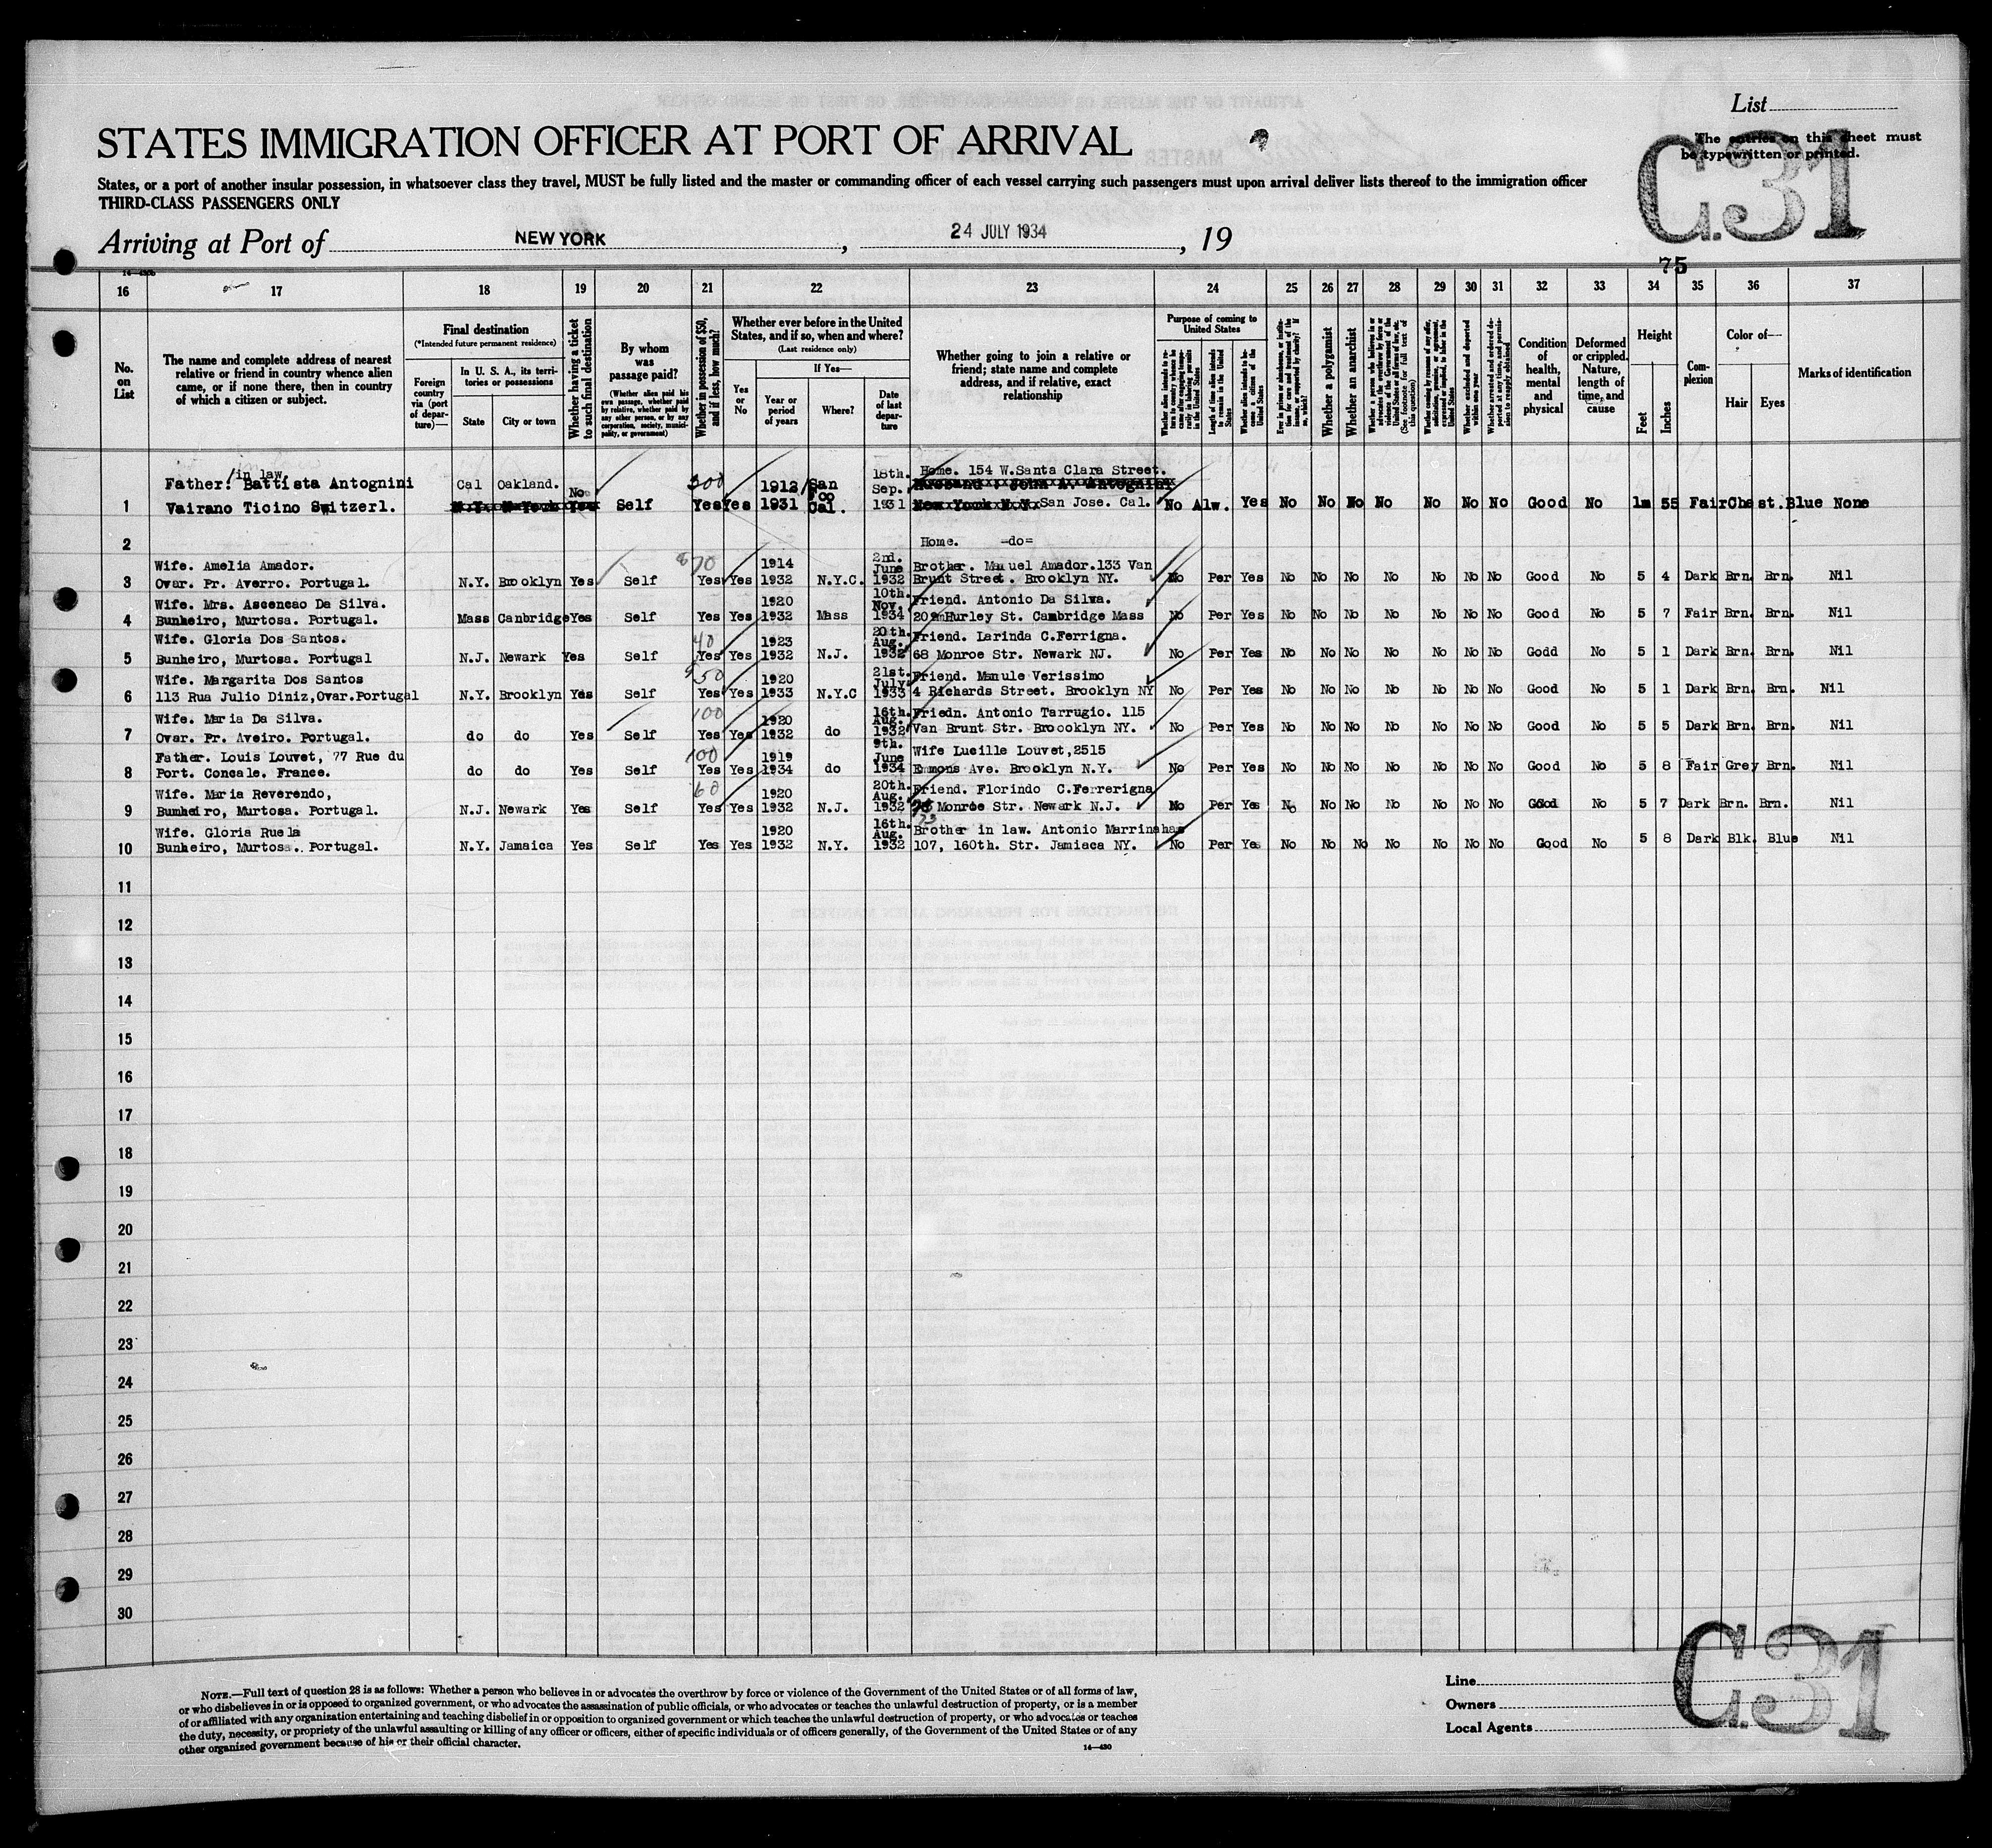 List
The entries on this sheet must
be typewritten or printed.
C.31
STATES IMMIGRATION OFFICER AT PORT OF ARRIVAL
States, or a port of another insular possession, in whatsoever class they travel, MUST be fully listed and the master or commanding officer of each vessel carrying such passengers must upon arrival deliver lists thereof to the immigration officer
THIRD-CLASS PASSENGERS ONLY
Arriving at Port of NEW YORK, 24 JULY 1934, 19
75
16 17 18 19 20 21 22 23 24 25 26 27 28 29 30 31 32 33 34 35 36 37
No. on List
The name and complete address of nearest relative or friend in country whence alien came, or if none there, then in country of which a citizen or subject.
Final destination
(*Intended future permanent residence)
Foreign country via (port of departure)—
In U. S. A., its territories or possessions
State City or town
Whether having a ticket to such final destination
By whom was passage paid?
(Whether alien paid his own passage, whether paid by relative, whether paid by any other person, or by any corporation, society, municipality, or government)
Whether in possession of $50, and if less, how much?
Whether ever before in the United States, and if so, when and where?
(Last residence only)
Yes or No
If Yes—
Year or period of years
Where?
Date of last departure
Whether going to join a relative or friend; state name and complete address, and if relative, exact relationship
Purpose of coming to United States
Length of time alien intends to remain in the United States
Whether alien intends to become a citizen of the United States
Whether a polygamist
Whether an anarchist
(See footnote for full text of this question)
Condition of health, mental and physical
Deformed or crippled. Nature, length of time, and cause
Height
Feet Inches
Complexion
Color of—
Hair Eyes
Marks of identification
in law
Father. Battista Antognini Cal Oakland. No 300 1912 San Fco 18th. Sep. Home. 154 W.Santa Clara Street.
1 Vairano Ticino Switzerl. Self Yes Yes 1931 Cal. 1931 San Jose. Cal. No Alw. Yes No No No No No No No Good No 1m 55 Fair Chest. Blue None
2 Home. -do=
Wife. Amelia Amador. 70 1914 2nd. June Brother. Manuel Amador.133 Van
3 Ovar. Pr. Averro. Portugal. N.Y. Brooklyn Yes Self Yes Yes 1932 N.Y.C. 1932 Brunt Street. Brooklyn NY. No Per Yes No No No No No No No Good No 5 4 Dark Brn. Brn. Nil
Wife. Mrs. Ascencao Da Silva. 1920 10th. Nov. Friend. Antonio Da Silva.
4 Bunheiro, Murtosa. Portugal. Mass Canbridge Yes Self Yes Yes 1932 Mass 1934 209 Hurley St. Cambridge Mass No Per Yes No No No No No No No Good No 5 7 Fair Brn. Brn. Nil
Wife. Gloria Dos Santos. 40 1923 20th. Aug. Friend. Larinda C.Ferrigna.
5 Bunheiro, Murtosa. Portugal N.J. Newark Yes Self Yes Yes 1932 N.J. 1932 68 Monroe Str. Newark NJ. No Per Yes No No No No No No No Godd No 5 1 Dark Brn. Brn. Nil
Wife. Margarita Dos Santos $50 1920 21st. July Friend. Manule Verissimo
6 113 Rua Julio Diniz,Ovar.Portugal N.Y. Brooklyn Yes Self Yes Yes 1933 N.Y.C 1933 4 Richards Street. Brooklyn NY No Per Yes No No No No No No No Good No 5 1 Dark Brn. Brn. Nil
Wife. Maria Da Silva. 100 1920 16th. Aug. Friedn. Antonio Tarrugio. 115
7 Ovar. Pr. Aveiro. Portugal. do do Yes Self Yes Yes 1932 do 1932 Van Brunt Str. Broocklyn NY. No Per Yes No No No No No No No Good No 5 5 Dark Brn. Brn. Nil
Father. Louis Louvet, 77 Rue du 100 1919 9th. June Wife Lucille Louvet,2515
8 Port. Concale. France. do do Yes Self Yes Yes 1934 do 1934 Emmons Ave. Brooklyn N.Y. No Per Yes No No No No No No No Good No 5 8 Fair Grey Brn. Nil
Wife. Maria Reverendo, 60 1920 20th. Aug. Friend. Florindo C.Ferrerigna
9 Bumheiro, Murtosa. Portugal. N.J. Newark Yes Self Yes Yes 1932 N.J. 1932 Monroe Str. Newark N.J. No Per Yes No No No No No No No Good No 5 7 Dark Brn. Brn. Nil
73
Wife. Gloria Ruela 1920 16th. Aug. Brother in law. Antonio Marrinahas
10 Bunheiro, Murtosa. Portugal. N.Y. Jamaica Yes Self Yes Yes 1932 N.Y. 1932 107, 160th. Str. Jamiaca NY. No Per Yes No No No No No No No Good No 5 8 Dark Blk. Blue Nil
11
12
13
14
15
16
17
18
19
20
21
22
23
24
25
26
27
28
29
30
NOTE.—Full text of question 28 is as follows: Whether a person who believes in or advocates the overthrow by force or violence of the Government of the United States or of all forms of law,
or who disbelieves in or is opposed to organized government, or who advocates the assassination of public officials, or who advocates or teaches the unlawful destruction of property, or is a member
of or affiliated with any organization entertaining and teaching disbelief in or opposition to organized government or which teaches the unlawful destruction of property, or who advocates or teaches
the duty, necessity, or propriety of the unlawful assaulting or killing of any officer or officers, either of specific individuals or of officers generally, of the Government of the United States or of any
other organized government because of his or their official character.
14—430
Line
Owners
Local Agents
C.31